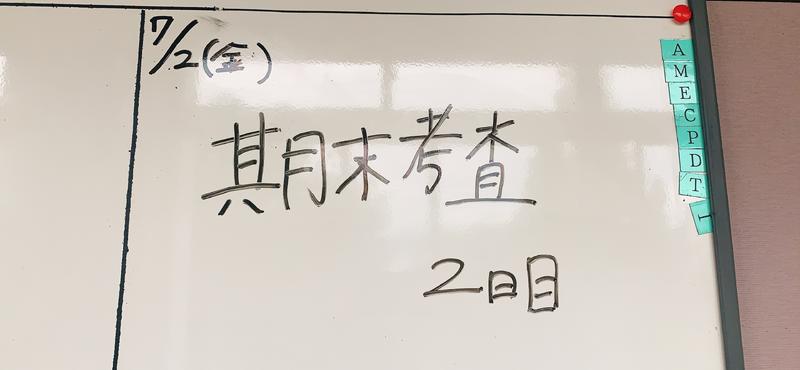 7/2(金)
期末考査
2日目
A
M
E
C
P
D
T
I